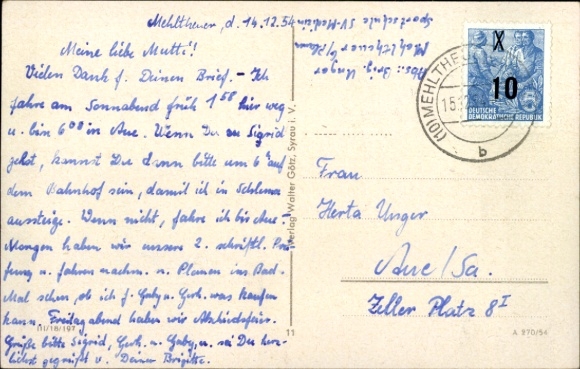 Mehltheuer, d. 14.12.54
Meine liebe Mutti!
Vielen Dank f. Deinen Brief. – Ich
fahre am Sonnabend früh 1⁵⁸ hier weg
u. bin 6⁰⁰ in Aue. Wenn Du zu Sigrid
gehst, kannst Du dann bitte um 6 auf
dem Bahnhof sein, damit ich in Schlema
aussteige. Wenn nicht, fahre ich bis Aue.
Morgen haben wir unsere 2. schriftl. Prü-
fung u. fahren nachm. n. Plauen ins Bad.
Mal sehen, ob ich f. Gaby u. Gerh. was kaufen
kann. Freitag abend haben wir Abschiedsfeier.
Grüße bitte Sigrid, Gerh. u. Gaby, u. sei Du herz-
lichst gegrüßt v. Deiner Brigitte.
III/18/197
Verlag Walter Götz, Syrau i. V.
11
Abs.: Brig. Unger
Mehltheuer b/Plauen
Sportschule SV-Medizin
X
10
DEUTSCHE
DEMOKRATISCHE REPUBLIK
(10) MEHLTHEU
15.12
b
Frau
Herta Unger
Aue/Sa.
Zeller Platz 8 I
A 270/54